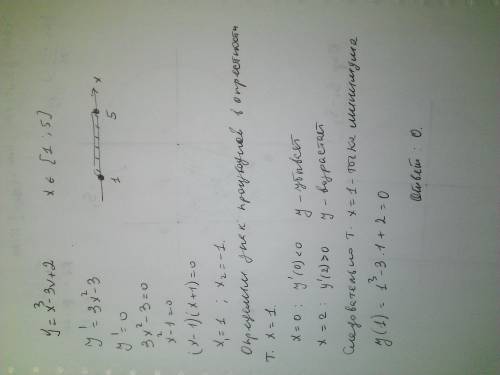 y = x³ - 3x + 2    x ∈ [1 ; 5]
1 5 x
y' = 3x² - 3
y' = 0
3x² - 3 = 0
x² - 1 = 0
(x-1)(x+1) = 0
x₁ = 1 ; x₂ = -1.
Определим знак производной в окрестности
т. x = 1.
x = 0 : y'(0) < 0 y - убывает
x = 2 : y'(2) > 0 y - возрастает
Следовательно т. x = 1 - точка минимума
y(1) = 1³ - 3·1 + 2 = 0
Ответ : 0.